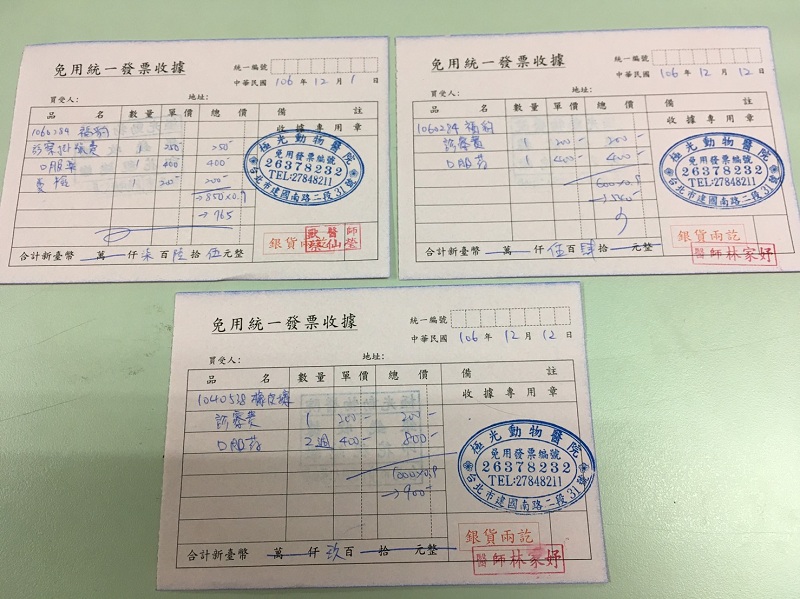 免用統一發票收據
統一編號
中華民國 106 年 12 月 1 日
買受人： 地址：
品名 數量 單價 總價 備註
收據專用章
1060284
1 250- 250-
口服藥 400- 400-
1 200- 200-
→850×0.9
→765
極光動物醫院
免用發票編號
26378232
TEL:27848211
台北市建國南路二段31號
銀貨兩訖
合計新臺幣 萬 仟 柒 百 陸 拾 伍 元整
免用統一發票收據
統一編號
中華民國 106 年 12 月 12 日
買受人： 地址：
品名 數量 單價 總價 備註
收據專用章
1060284
診察費 1 200- 200-
口服药 1 400- 400-
600×0.9
→540-
極光動物醫院
免用發票編號
26378232
TEL:27848211
台北市建國南路二段31號
銀貨兩訖
醫師林家妤
合計新臺幣 萬 仟 伍 百 肆 拾 元整
免用統一發票收據
統一編號
中華民國 106 年 12 月 12 日
買受人： 地址：
品名 數量 單價 總價 備註
收據專用章
1040538 橡皮擦
診察费 1 200- 200-
口服药 2週 400- 800-
1000×0.9
→900-
極光動物醫院
免用發票編號
26378232
TEL:27848211
台北市建國南路二段31號
銀貨兩訖
醫師林家妤
合計新臺幣 萬 仟 玖 百 拾 元整